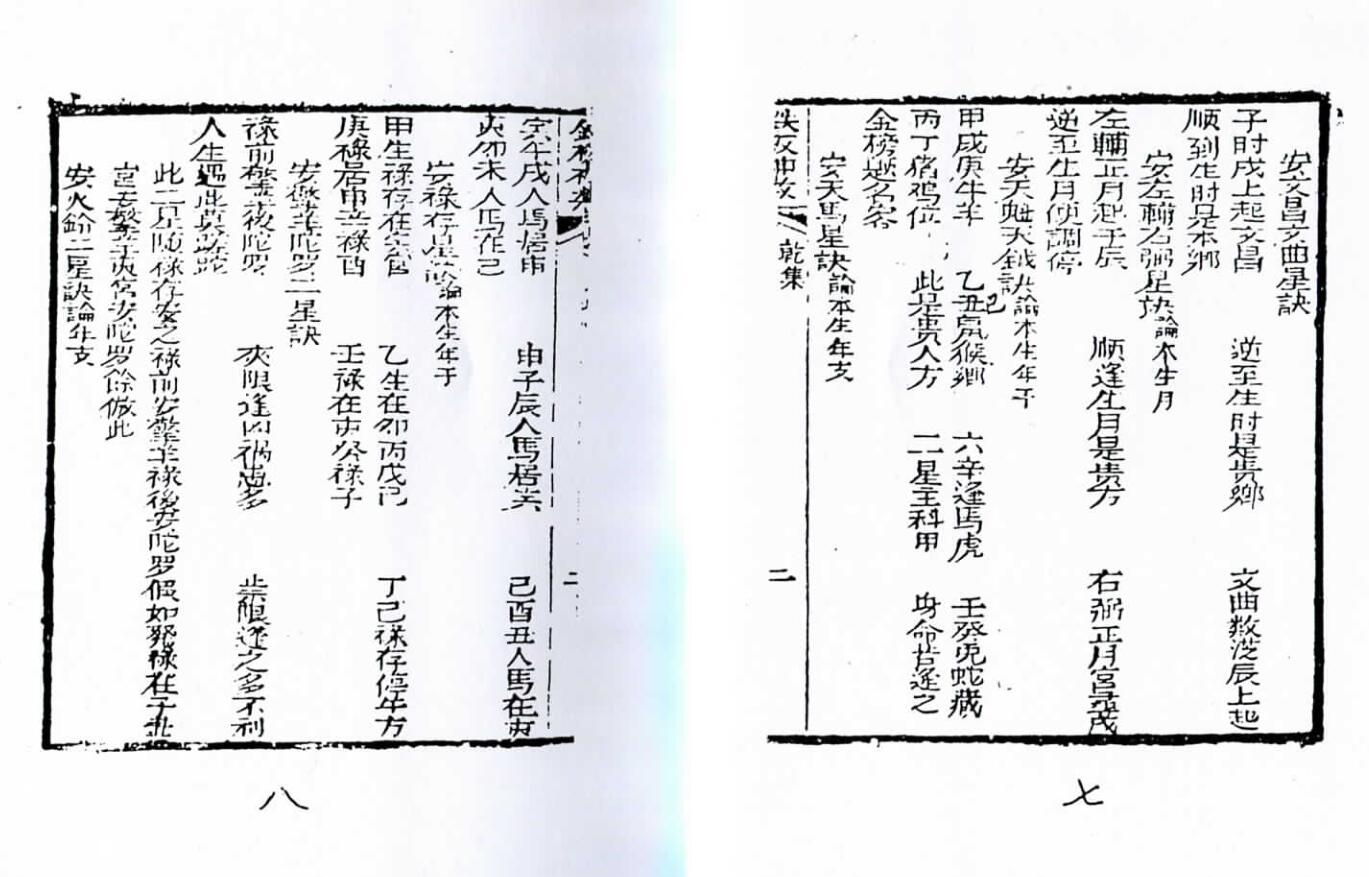 安文昌文曲星訣
子时戌上起文昌　逆至生时是贵鄉　文曲数從辰上起
順到生时是本鄉
安左輔右弼星訣論本生月
左輔正月起于辰　順逢生月是貴方　右弼正月宫尋戌
逆至生月便調停
安天魁天鉞訣論本生年干
甲戊庚牛羊　乙己鼠猴鄉　六辛逢馬虎　壬癸兎蛇藏
丙丁猪鸡位　此是贵人方　二星主科甲　身命若逢之
金榜題名客
安天馬星訣論本生年支
乾集
二
寅午戌人馬居申　申子辰人馬居寅　巳酉丑人馬在亥
亥卯未人馬在巳
安禄存星訣論本生年干
甲生禄存在寅宫　乙生在卯丙戊巳　丁己禄存停午方
庚禄居申辛禄酉　壬禄在亥癸禄子
安擎羊陀罗二星訣
禄前擎羊後陀罗　夾限逢凶禍患多　歲限逢之多不利
人生遇此
此二星随禄存安之禄前安擎羊禄後安陀罗假如癸禄在子丑
宫安擎羊亥宫安陀罗餘倣此
安火鈴二星訣論年支
二
七
八